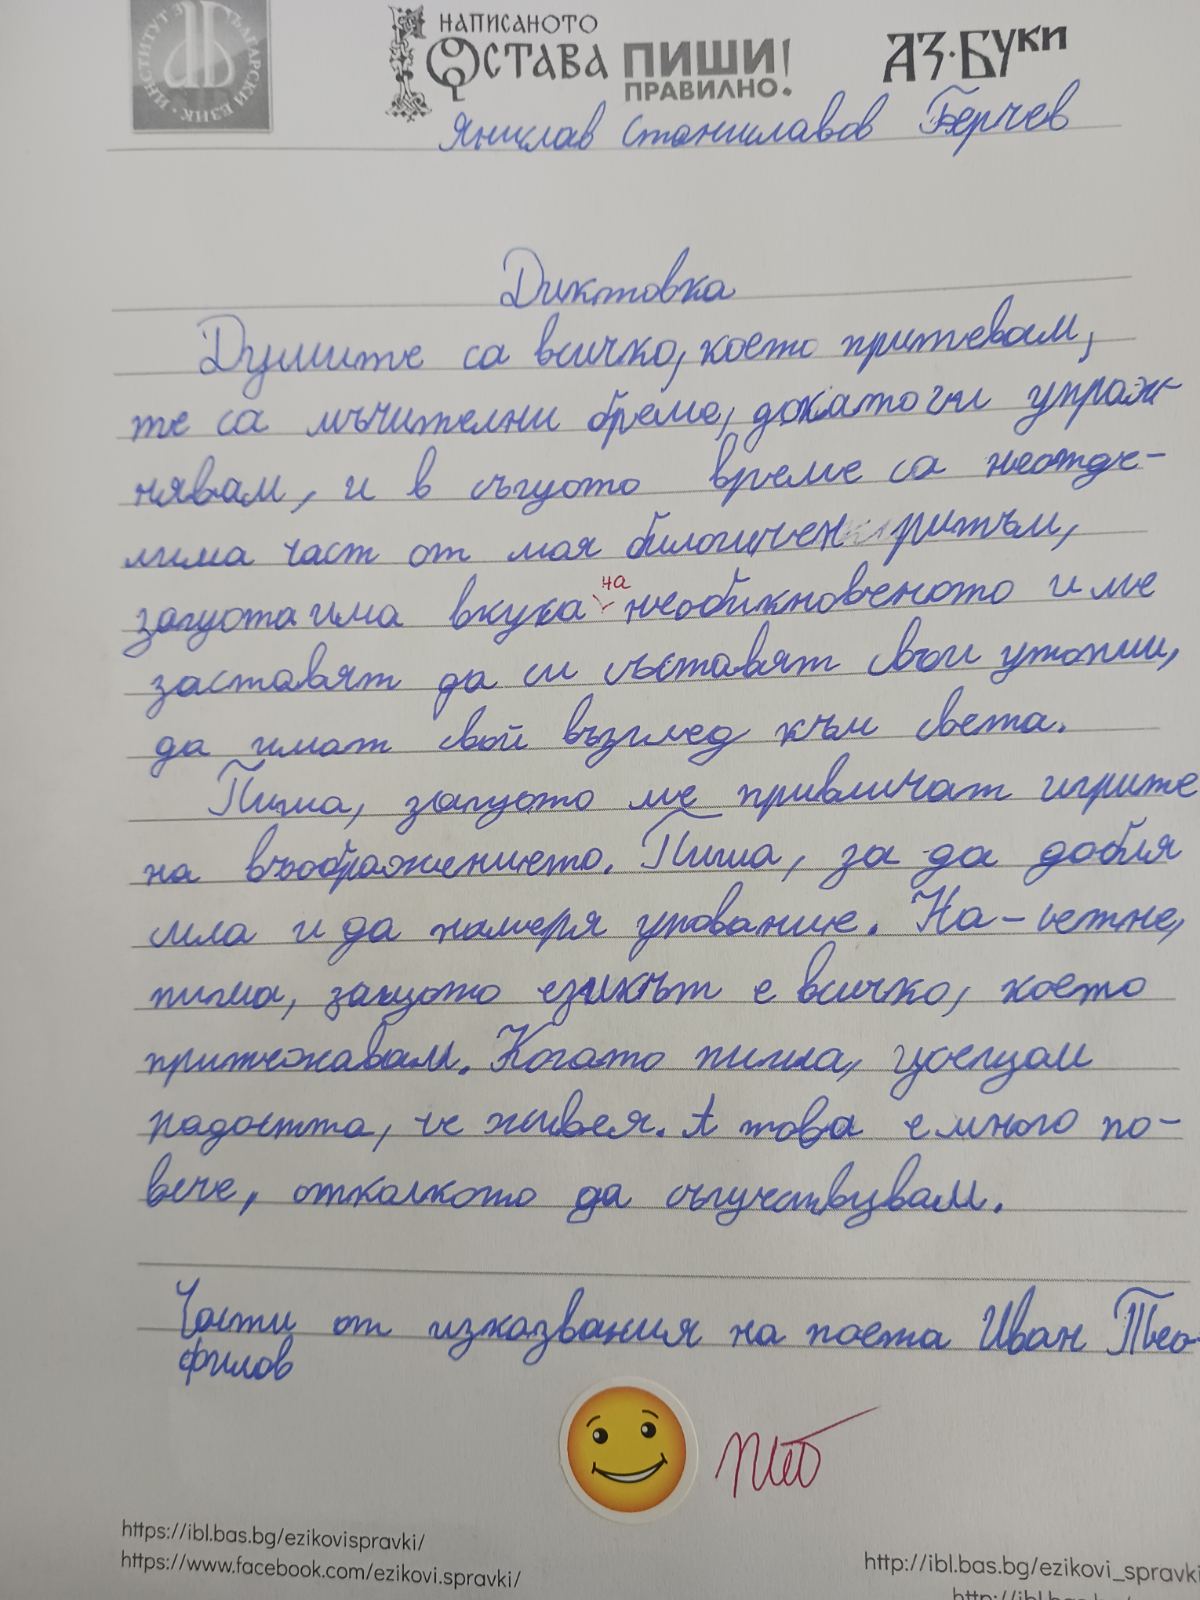 ИНСТИТУТ ЗА БЪЛГАРСКИ ЕЗИК
НАПИСАНОТО
ОСТАВА ПИШИ!
ПРАВИЛНО.
АЗ·БУКИ
Янислав Станиславов Берчев
Диктовка
Думите са всичко, което притевам,
те са мъчителни бреме, докато ги упраж-
нявам, и в същото време са неотде-
лима част от моя билогичен ритъм,
защота има вкуса на необикновеното и ме
заставят да си съставят свои утопии,
да имат свой възглед към света.
Пиша, защото ме привличат игрите
на въображението. Пиша, за да добия
сила и да намеря упование. На-сетне,
пиша, защото езикът е всичко, което
притежавам. Когато пиша, усещам
радостта, че живея. А това е много по-
вече, отколкото да същствувам.
Части от изказвания на поета Иван Тео-
филов
https://ibl.bas.bg/ezikovispravki/
https://www.facebook.com/ezikovi.spravki/
http://ibl.bas.bg/ezikovi_spravki